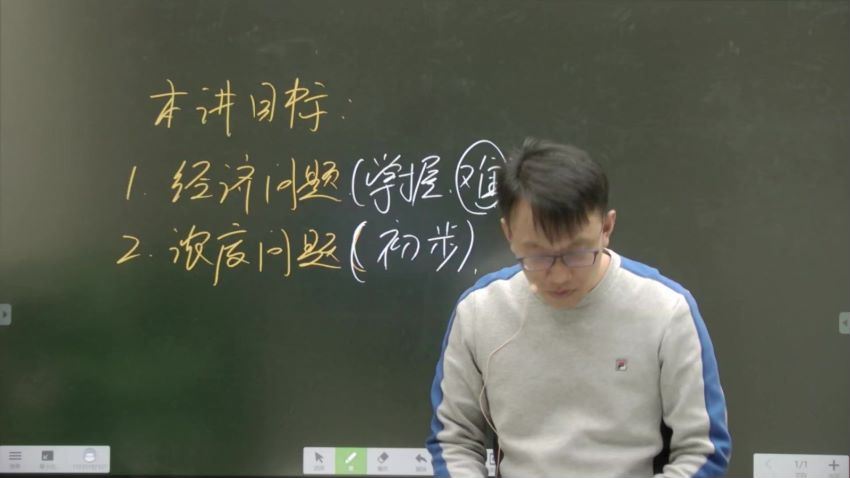 本讲目标：
1. 经济问题(掌握、难
2. 浓度问题(初步).
1/1